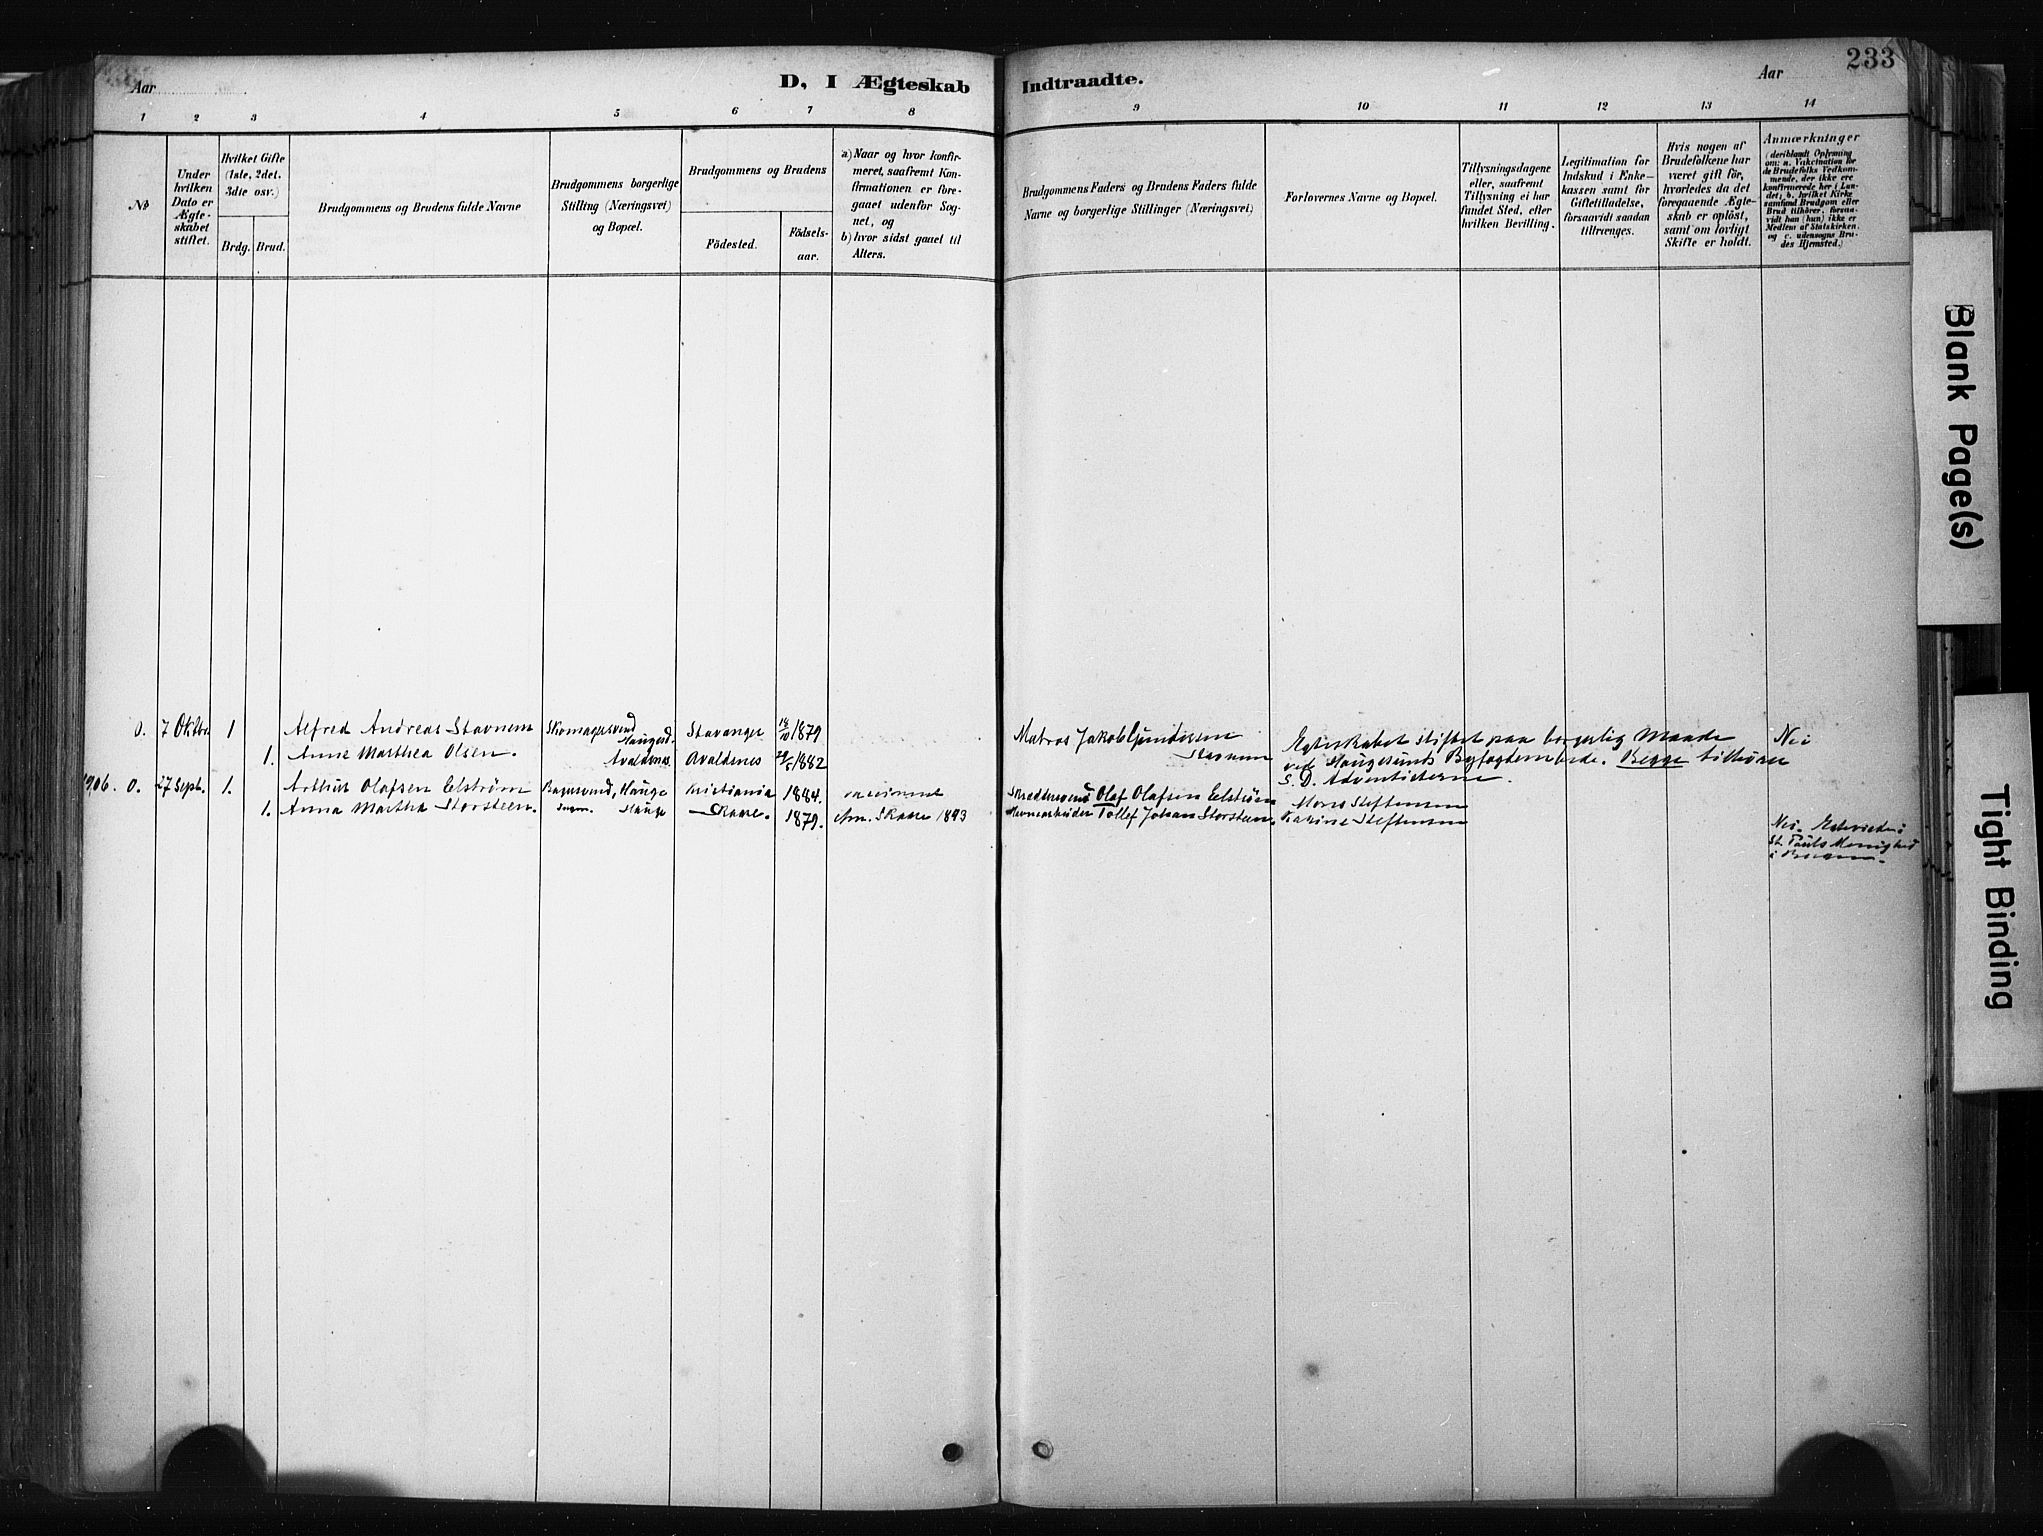 233
Aar
D, I Ægteskab
Indtraadte.
Aar
1 2 3 4 5 6 7 8 9 10 11 12 13 14
No
Under hvilken Dato er Ægteskabet stiftet.
Hvilket Gifte (1ste, 2det, 3die osv.)
Brdg. Brud.
Brudgommens og Brudens fulde Navne
Brudgommens borgerlige Stilling (Næringsvei) og Bopæl.
Brudgommens og Brudens
Födested.
Födsels-
aar.
a) Naar og hvor konfir-
meret, saafremt Kon-
firmationen er fore-
gaaet udenfor Sog-
net, og
b) hvor sidst gaaet til
Alters.
Brudgommens Faders og Brudens Faders fulde
Navne og borgerlige Stillinger (Næringsvei)
Forlovernes Navne og Bopæl.
Tillysningsdagene
eller, saafremt
Tillysning ei har
fundet Sted, efter
hvilken Bevilling.
Legitimation for
Indskud i Enke-
kassen samt for
Giftetilladelse,
forsaavidt saadan
tiltrænges.
Hvis nogen af
Brudefolkene har
været gift för,
hvorledes da det
foregaaende Ægte-
skab er oplöst,
samt om lovligt
Skifte er holdt.
Anmærkninger
(deriblandt Oplysning
om: a. Vakcination for
de Brudefolks Vedkom-
mende, der ikke ere
konfirmerede her i Lan-
det, b. hvilket Kirke-
samfund Brudgom eller
Brud tilhörer, forsaa-
vidt han (hun) ikke er
Medlem af Statskirken,
og c. udensogns Bru-
des Hjemsted.)
0. 7 Oktbr 1 Alfred Andreas Stavnem Skomagersvend Haugesd. Stavanger 1879 Matros Jakob Gundersen Stavnem Nei
1. Anne Marthea Olsen. Avaldsnes Avaldsnes 1882
Egteskabet stiftet paa borgerlig Maade
ved Haugesunds Byfogdembede. Begge tilhører
S. D. Adventisterne.
1906. 0. 27 Sept. 1. Arthur Olafsen Elstrøm Bagersvend, Hauge Kristiania 1884. Olaf Olafsen Elstrøm
1. Anna Martha Storsteen. Skaare. 1879. Skaare 1893 Tollef Johan Storsteen.
Nei.
St. Pauls Menighed
Blank Page(s)
Tight Binding